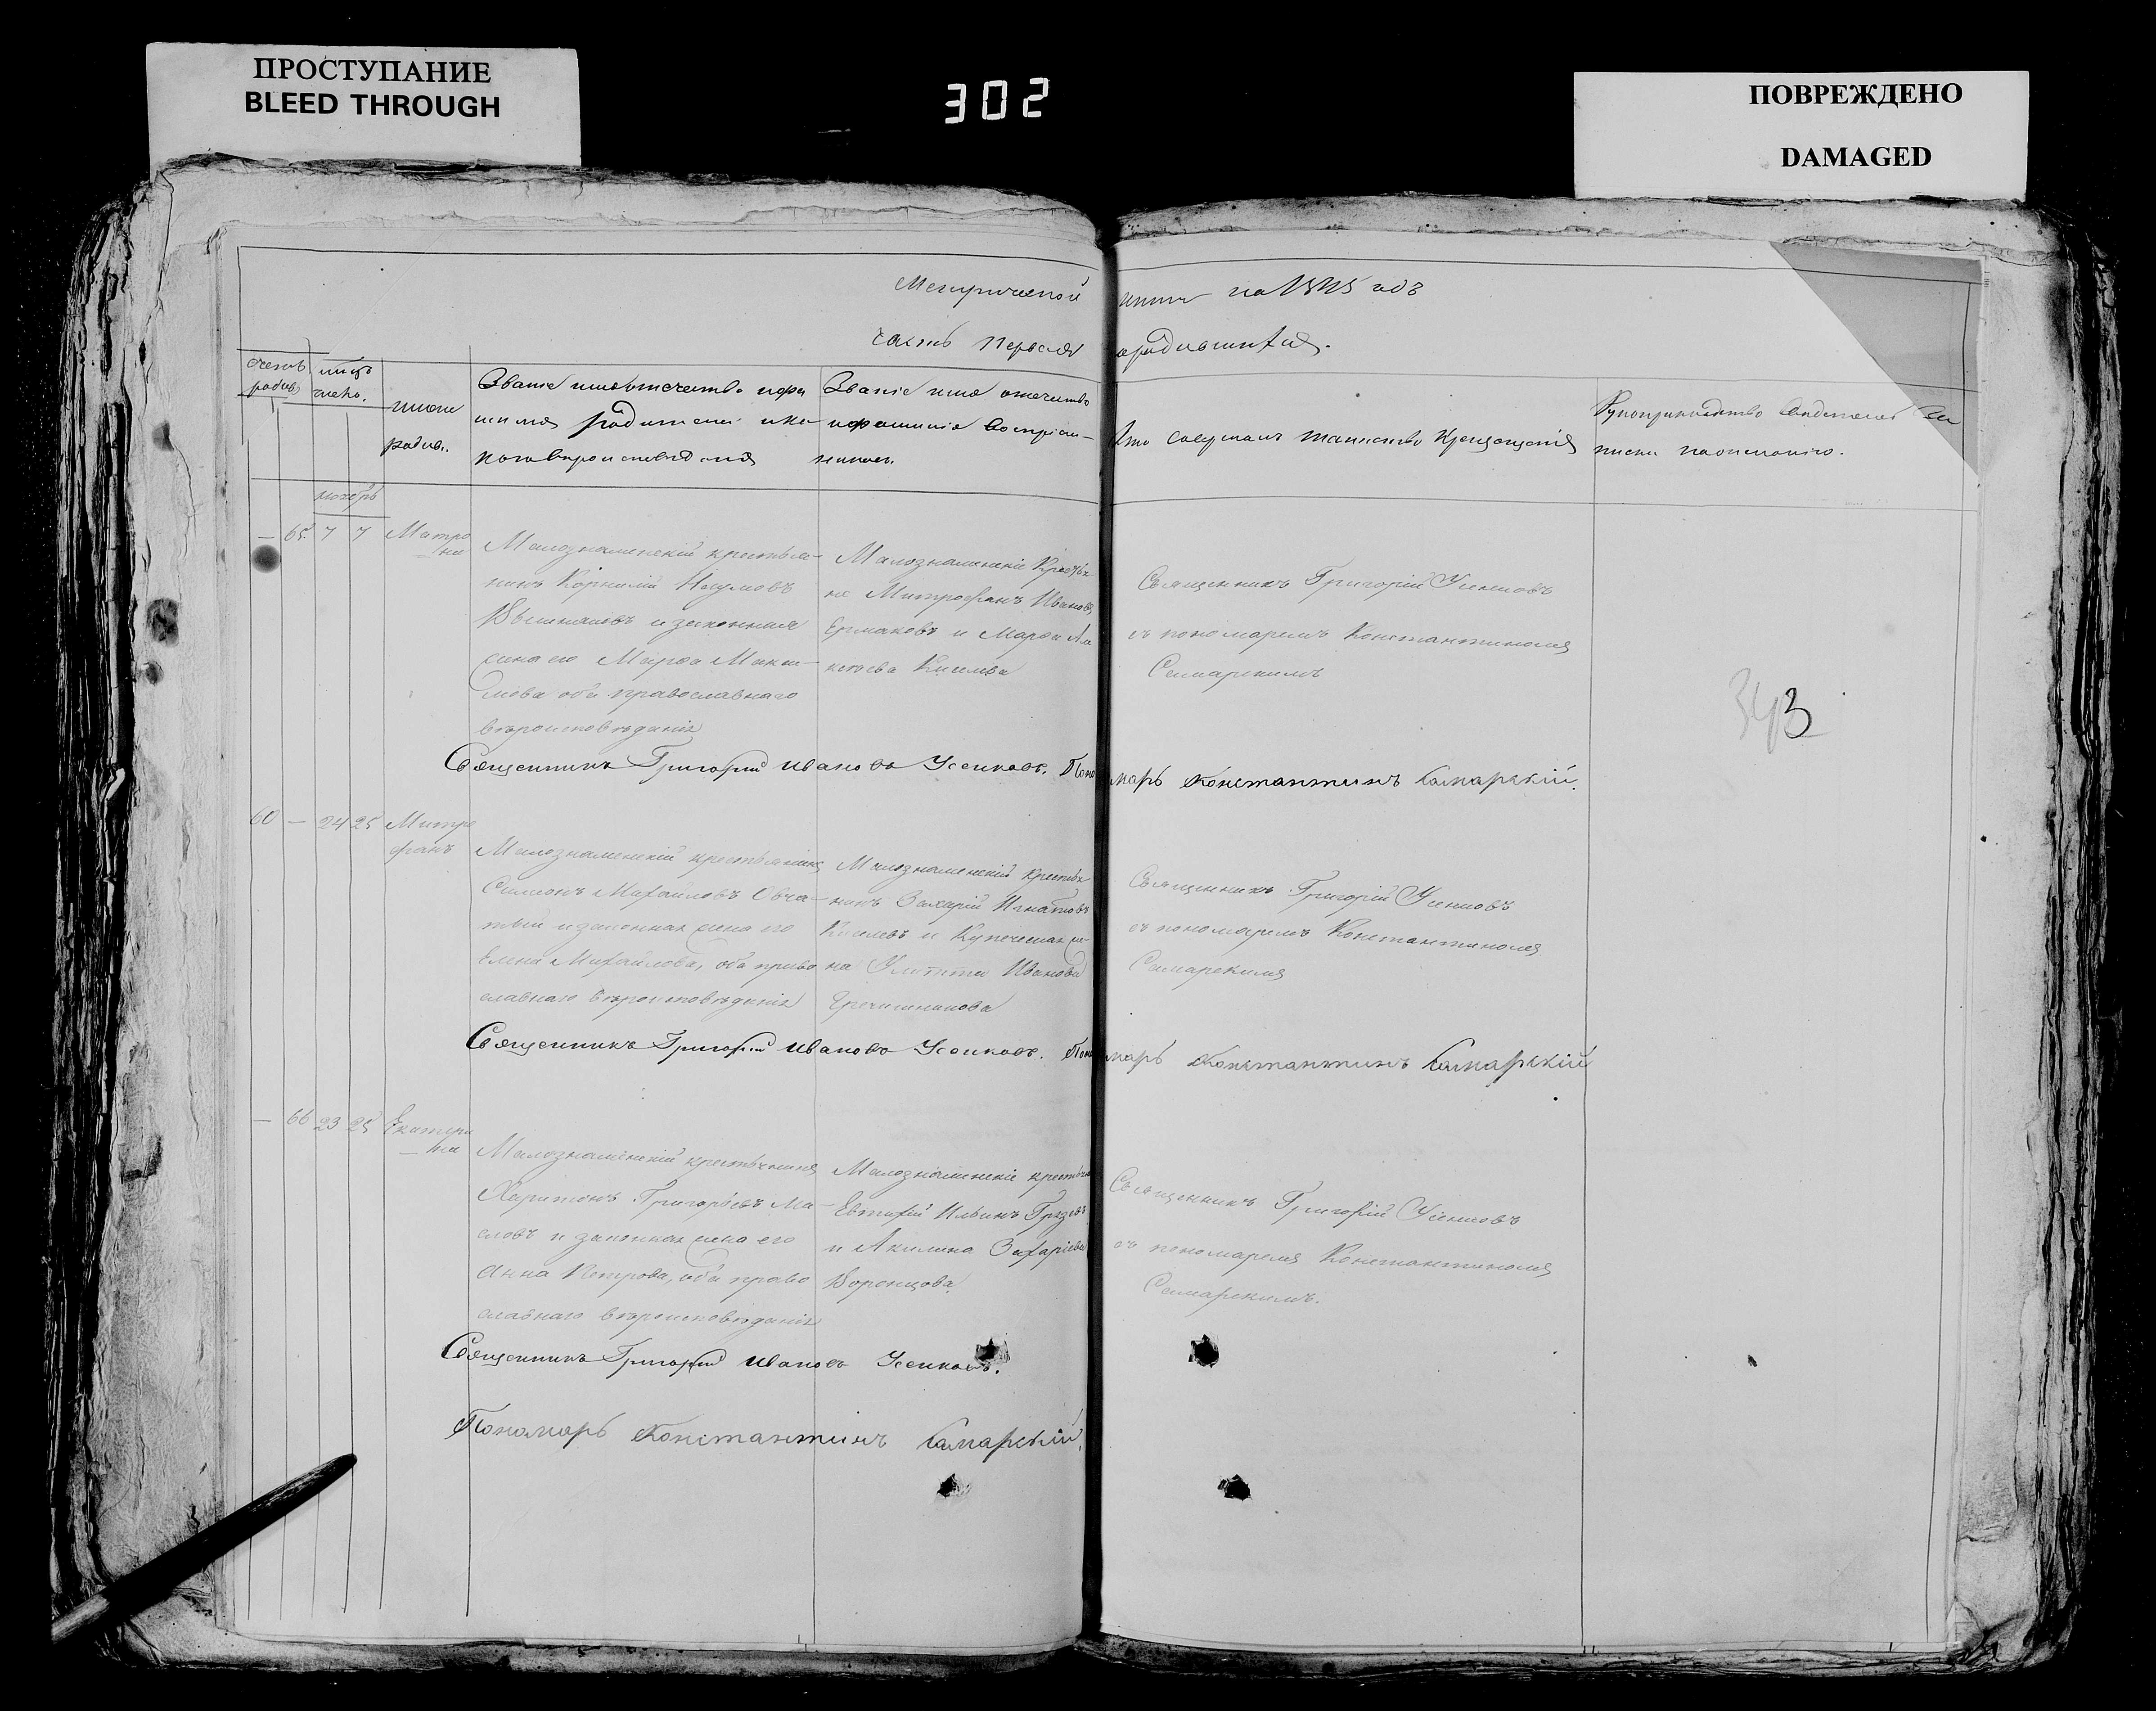 ПРОСТУПАНИЕ
BLEED THROUGH
302
ПОВРЕЖДЕНО
DAMAGED
Метрической книги на 1845 годъ
часть первая о родившихся.
счетъ родив.
число.
имена родив.
Званіе имя отечество и фамилія родителей и какого вероисповеданія
Званіе имя отечество и фамилія восприемниковъ
Кто совершалъ таинство крещенія
Рукоприкладство свидетелей
ноябрь
— 65 7 7 Матрона
Малознаменскій крестья-
нинъ Корнилій Наумовъ
Вишняковъ и законная
жена его Марѳа Макси-
мова оба православнаго
вѣроисповѣданія
Малознаменскіе крестья-
не Митрофанъ Ивановъ
Ермаковъ и Марѳа
Киселева
Священникъ Григорій Усенковъ
съ пономаремъ Константиномъ
Самарскимъ
343
Священникъ Григорій Ивановъ Усенковъ. Пономарь Константинъ Самарскій.
60 — 24 25 Митрофанъ
Малознаменскій крестьянинъ
Симеонъ Михайловъ Овча-
и законная жена его
Елена Михайлова, оба право
славнаго вѣроисповѣданія
Малознаменскій крестья
нинъ Захарій Игнатовъ
Киселевъ и Купеческая же-
на Улитта Иванова
Гречишникова
Священникъ Григорій Усенковъ
съ пономаремъ Константиномъ
Самарскимъ
Священникъ Григорій Ивановъ Усенковъ. Пономарь Константинъ Самарскій
— 66 23 25 Екатерина
Малознаменскій крестьянинъ
Харитонъ Григорьевъ Ма-
словъ и законная жена его
Анна Петрова, оба право
славнаго вѣроисповѣданія
Малознаменскіе крестьяне
Евтифій Ильинъ Грязевъ
и Акилина Захаріева
Воронцова.
Священникъ Григорій Усенковъ
съ пономаремъ Константиномъ
Самарскимъ.
Священникъ Григорій Ивановъ Усенковъ.
Пономарь Константинъ Самарскій.